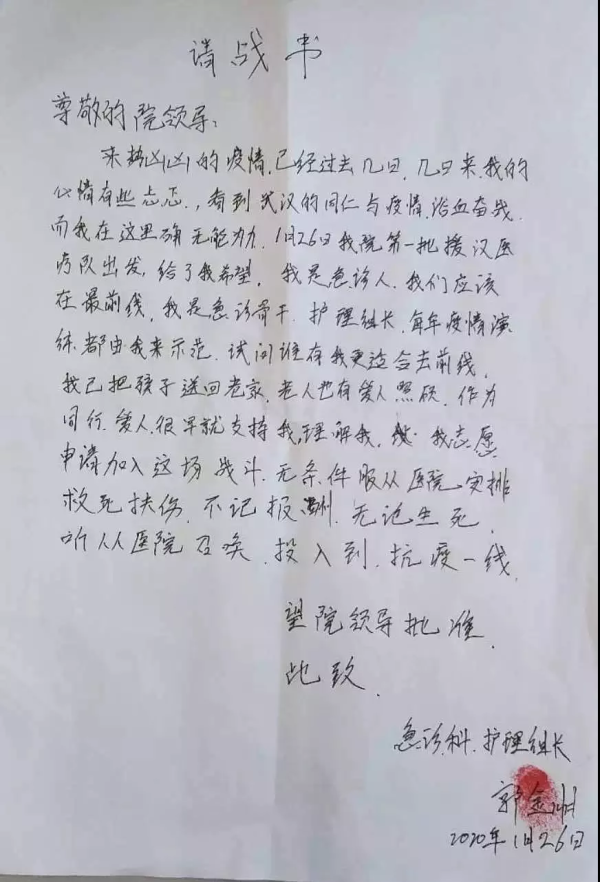 请战书
尊敬的院领导：
来势凶凶的疫情，已经过去几日，几日来，我的
心情有些忐忑，看到武汉的同仁与疫情浴血奋战，
而我在这里确无能为力，1月26日我院第一批援汉医
疗队出发，给了我希望，我是急诊人，我们应该
在最前线，我是急诊骨干，护理组长，每年疫情演
练都由我来示范，试问谁有我更适合去前线，
我已把孩子送回老家，老人也有爱人照顾，作为
同行，爱人很早就支持我，理解我，我志愿
申请加入这场战斗，无条件服从医院安排
救死扶伤，不记报酬，无论生死，
听从医院召唤，投入到，抗疫一线，
望院领导批准，
此致，
急诊科，护理组长
郭金
2020年1月26日